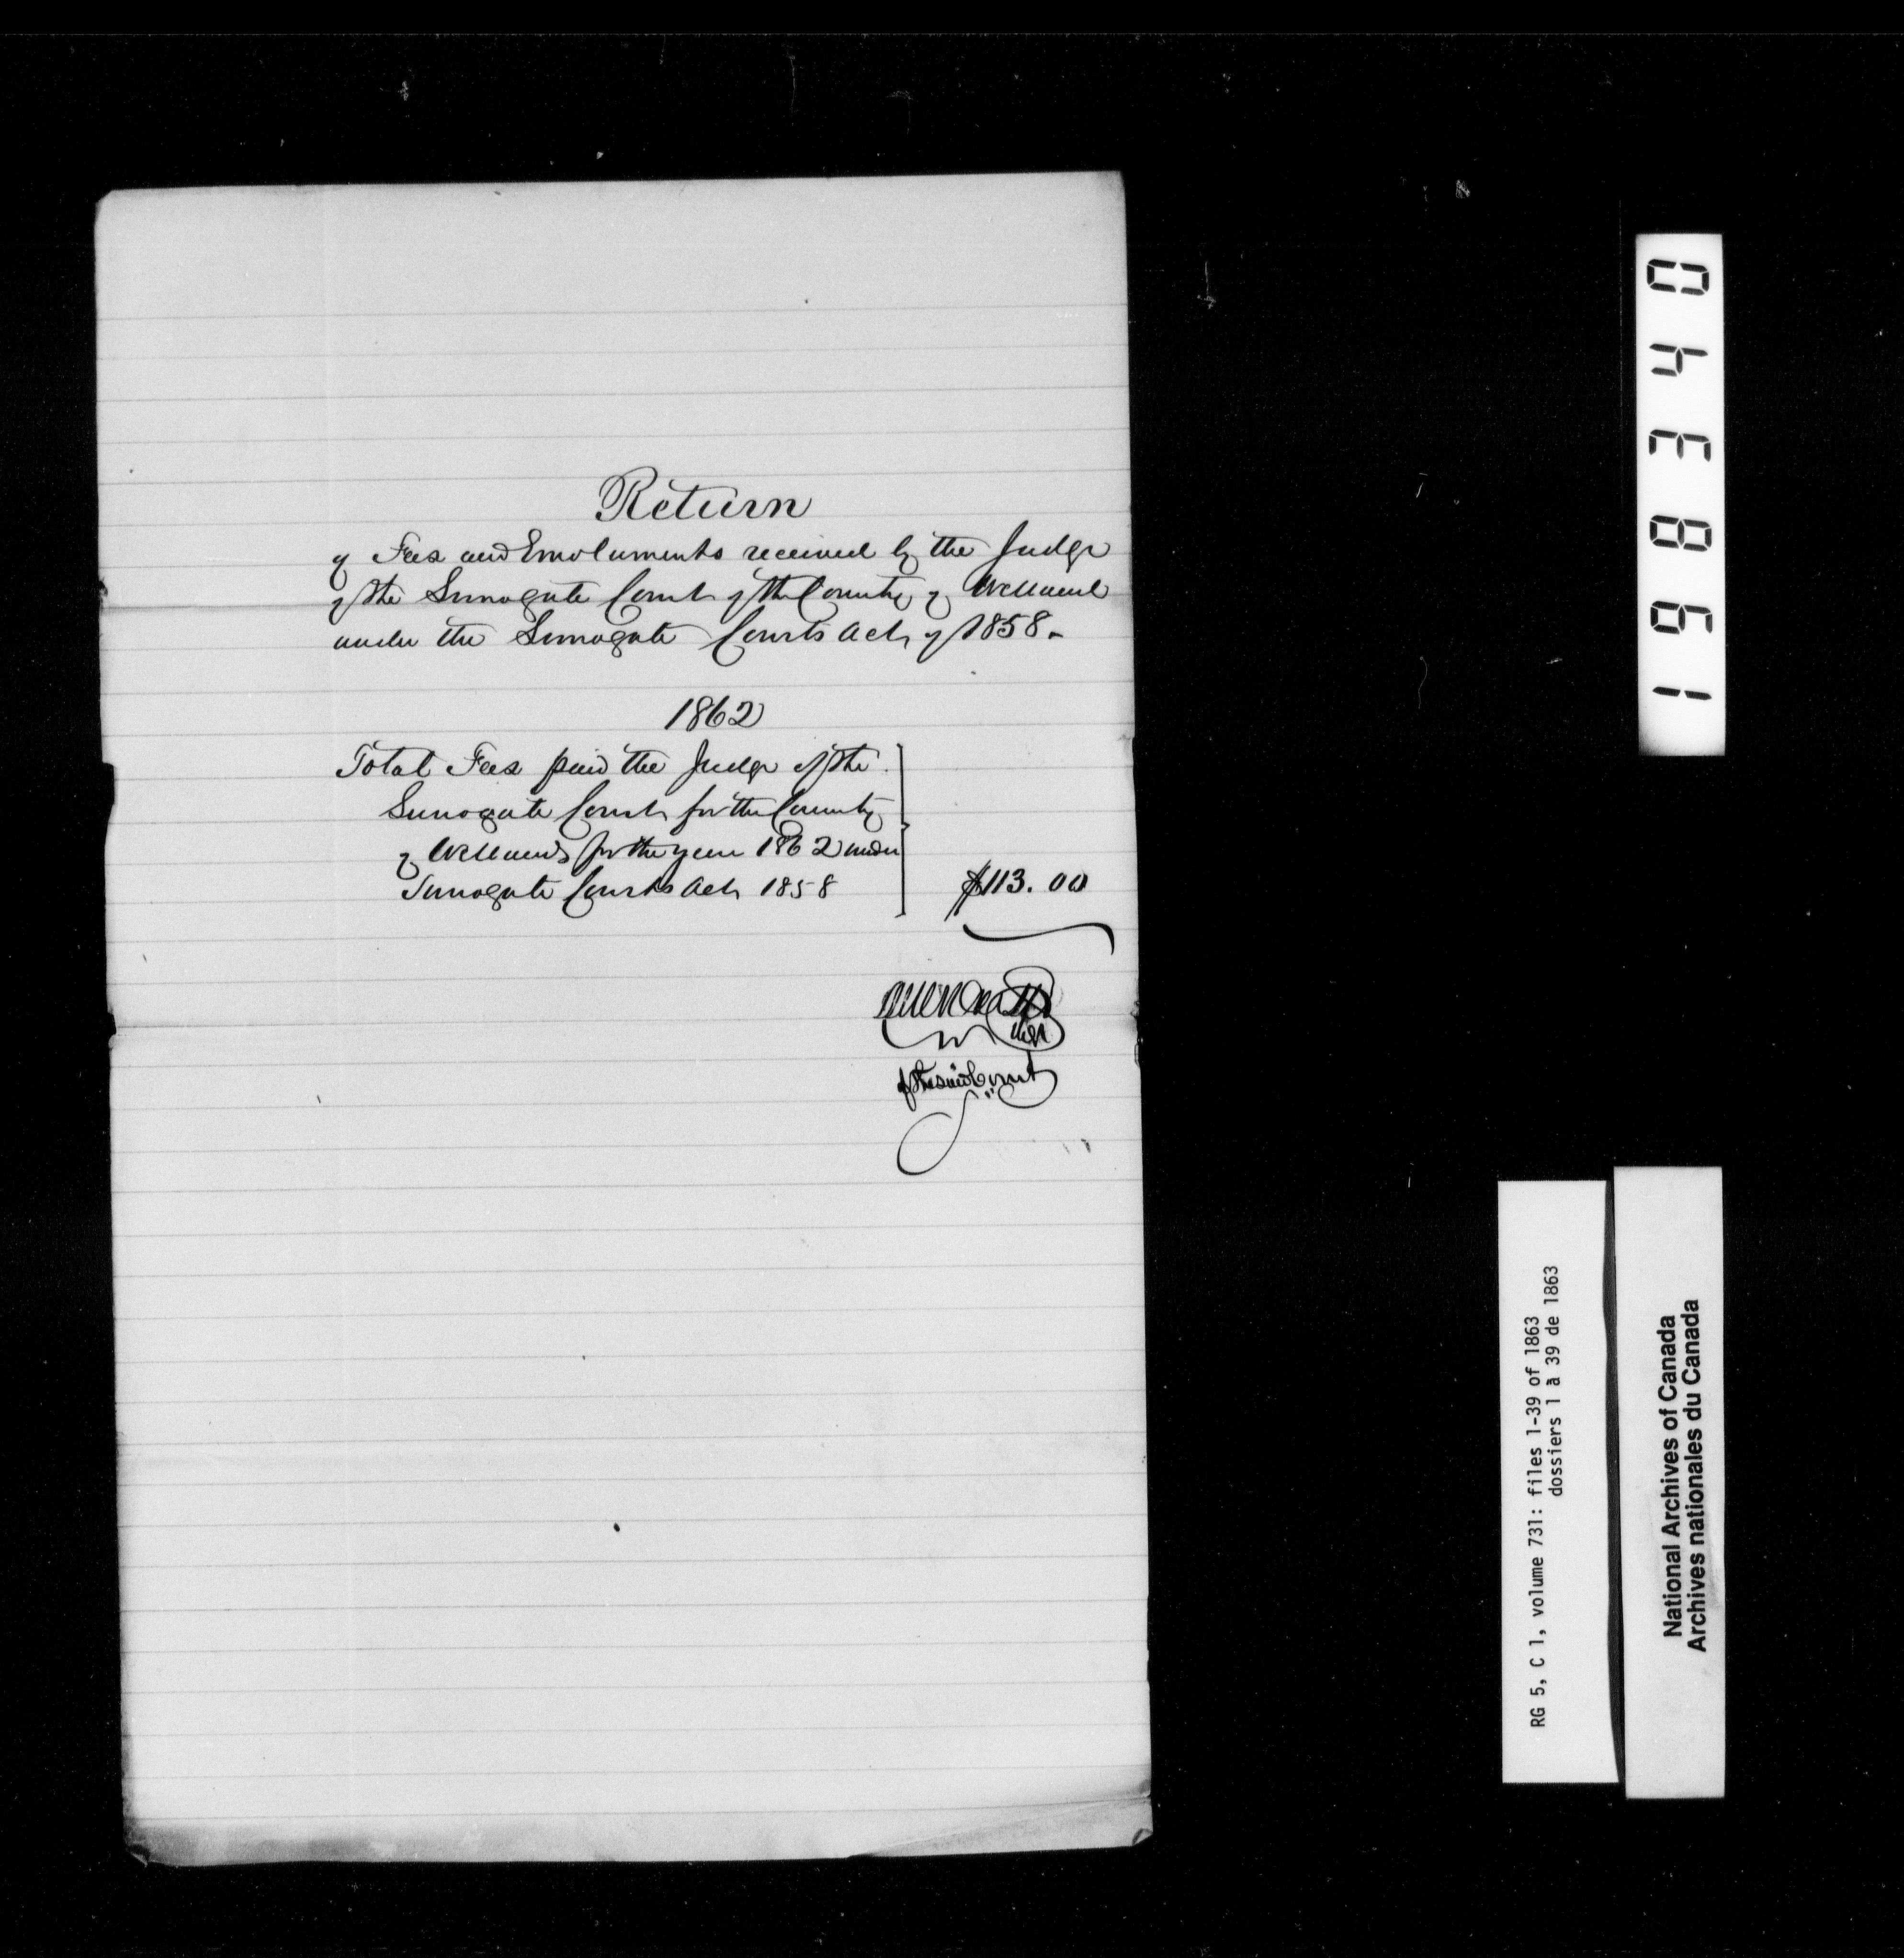 Return
of Fees and Emoluments received by the Judge
of the Surrogate Court of the County of Welland
under the Surrogate Courts Act of 1858.
1862
Total Fees paid the Judge of the
Surrogate Court for the County
of Welland for the year 1862 under
Surrogate Courts Act 1858
$113.00
of the said Court
198340
RG 5, C 1, volume 731: files 1-39 of 1863
dossiers 1 à 39 de 1863
National Archives of Canada
Archives nationales du Canada